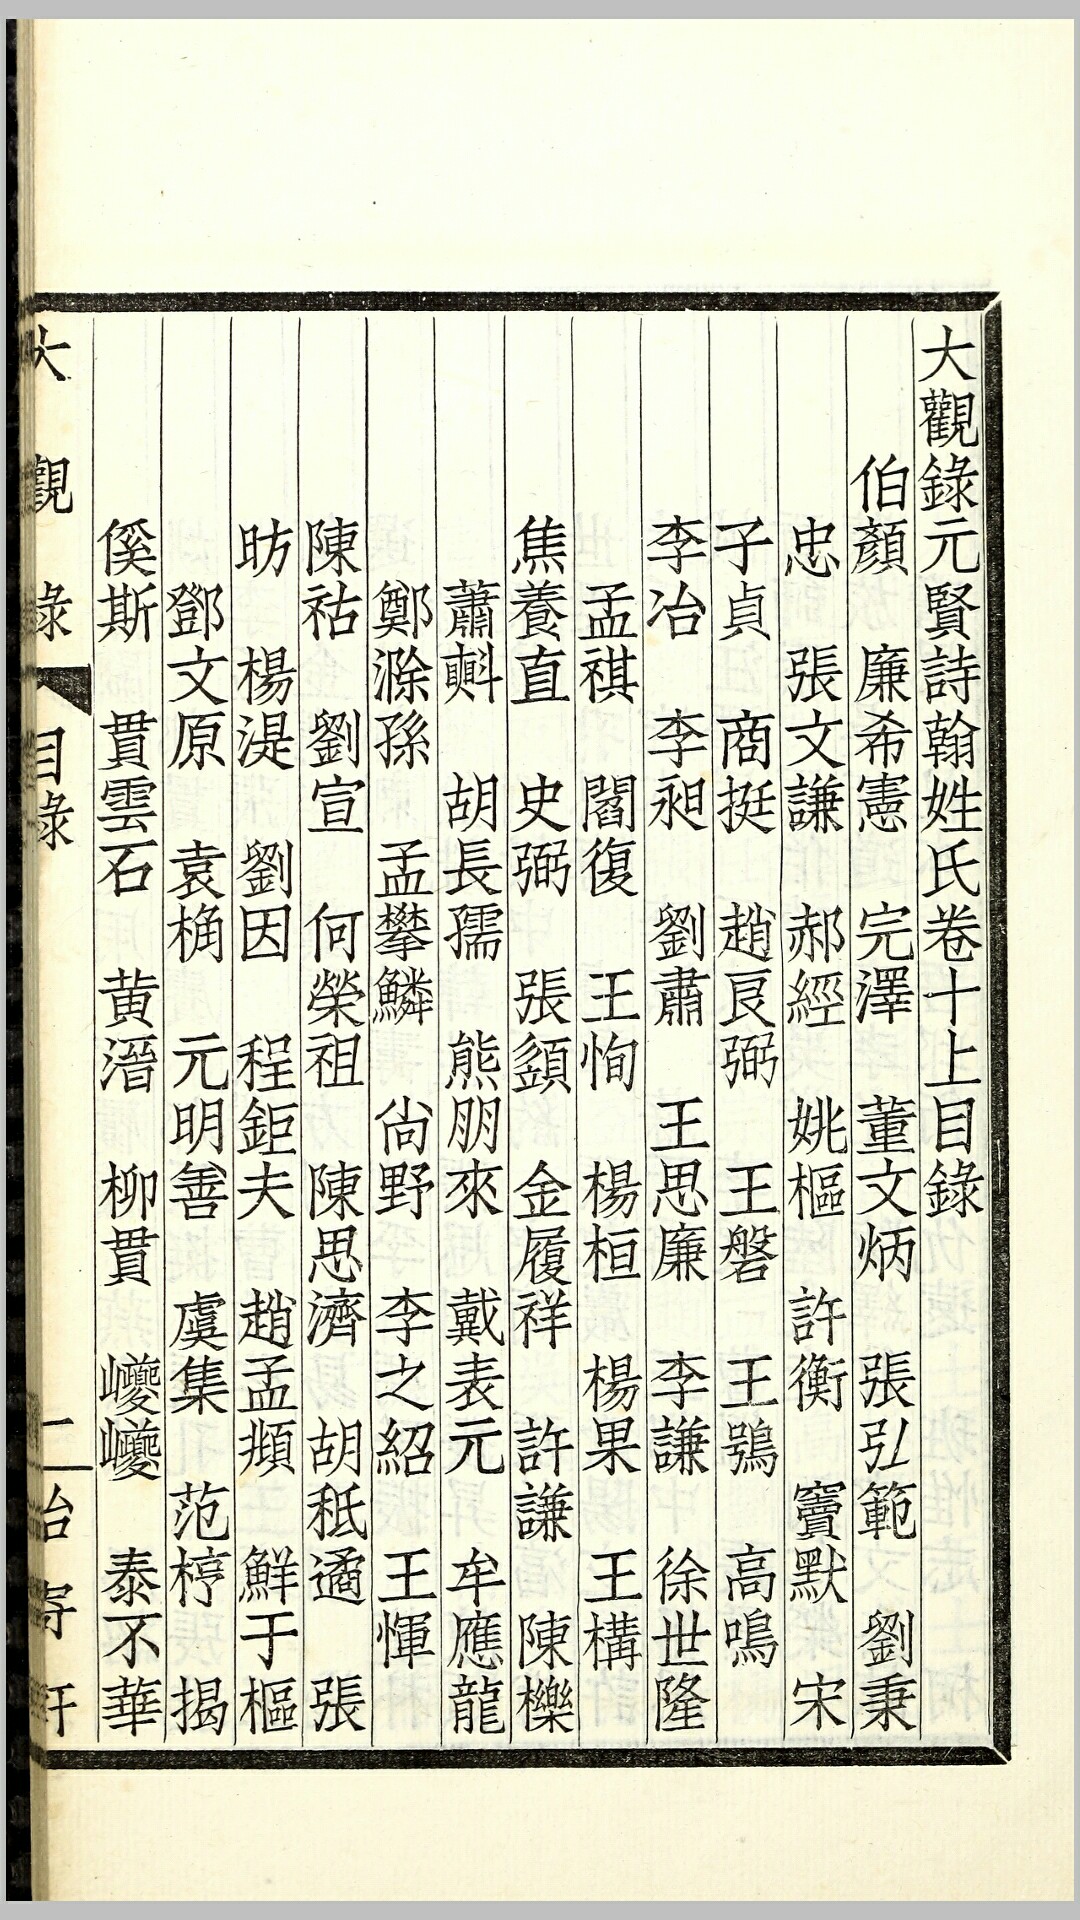 大觀錄元賢詩翰姓氏卷十上目錄
伯顏　廉希憲　完澤　董文炳　張弘範　劉秉
忠　張文謙　郝經　姚樞　許衡　竇默　宋
子貞　商挺　趙良弼　王磐　王鶚　高鳴
李冶　李昶　劉肅　王思廉　李謙　徐世隆
孟祺　閻復　王恂　楊桓　楊果　王構
焦養直　史弼　張頟　金履祥　許謙　陳櫟
蕭㪺　胡長孺　熊朋來　戴表元　牟應龍
鄭滁孫　孟攀鱗　尚野　李之紹　王惲
陳祜　劉宣　何榮祖　陳思濟　胡秪遹　張
昉　楊湜　劉因　程鉅夫　趙孟頫　鮮于樞
鄧文原　袁桷　元明善　虞集　范梈　揭
傒斯　貫雲石　黃溍　柳貫　巙巙　泰不華
大觀錄　目錄　二　怡寄軒